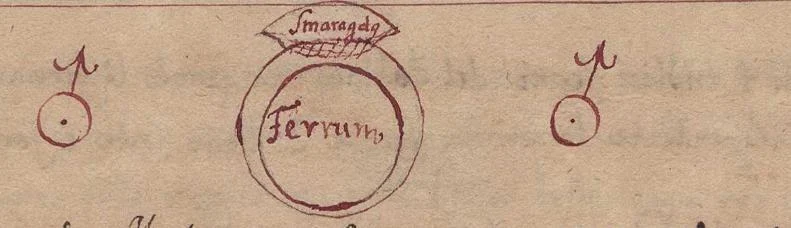 Smaragdq
Ferrum